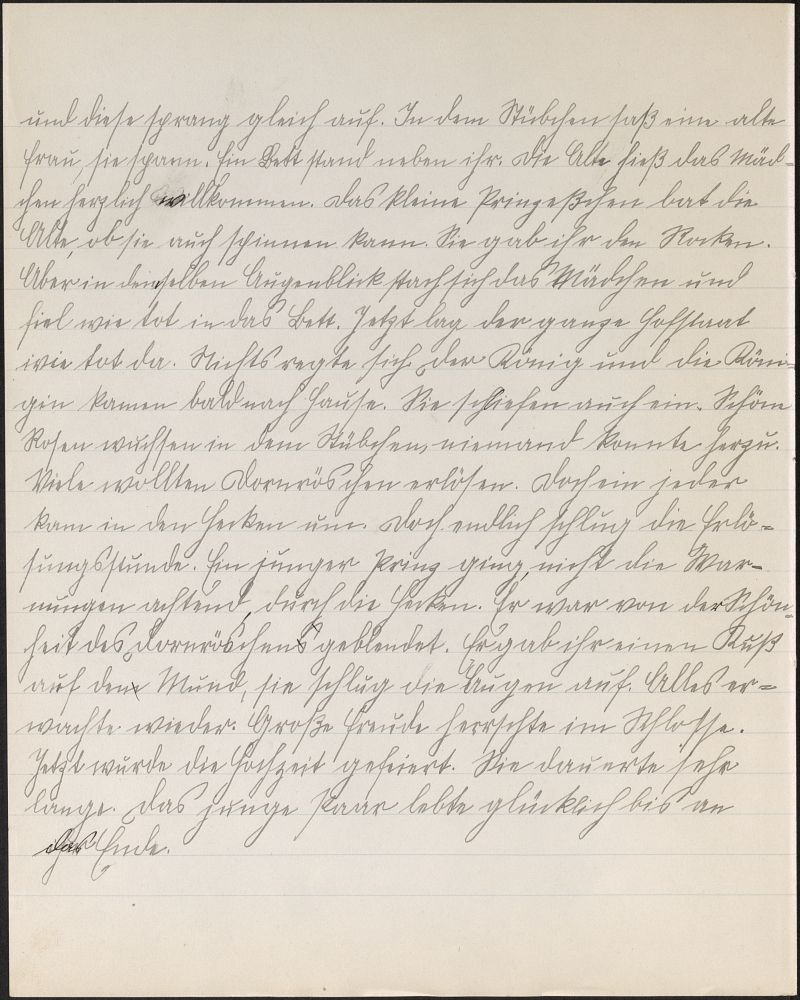 und diese sprang gleich auf. In dem Stübchen saß eine alte
Frau, sie spann. Ein Bett stand neben ihr. Die Alte hieß das Mäd-
chen herzlich willkommen. Das kleine Prinzeßchen bat die
Alte, ob sie auch spinnen kann. Sie gab ihr den Rocken.
Aber in demselben Augenblick stach sich das Mädchen und
fiel wie tot in das Bett. Jetzt lag der ganze Hofstaat
wie tot da. Nichts regte sich. Der König und die Köni-
gin kamen bald nach Hause. Sie schliefen auch ein. Schöne
Rosen wuchsen in dem Stübchen, niemand konnte herzu.
Viele wollten Dornröschen erlösen. Doch ein jeder
kam in den Hecken um. Doch endlich schlug die Erlö-
sungsstunde. Ein junger Prinz ging, nicht die War-
nungen achtend, durch die Hecken. Er war von der Schön-
heit des Dornröschens geblendet. Er gab ihr einen Kuß
auf den Mund, sie schlug die Augen auf. Alles er-
wachte wieder. Große Freude herrschte im Schlosse.
Jetzt wurde die Hochzeit gefeiert. Sie dauerte sehr
lange. Das junge Paar lebte glücklich bis an
das Ende.